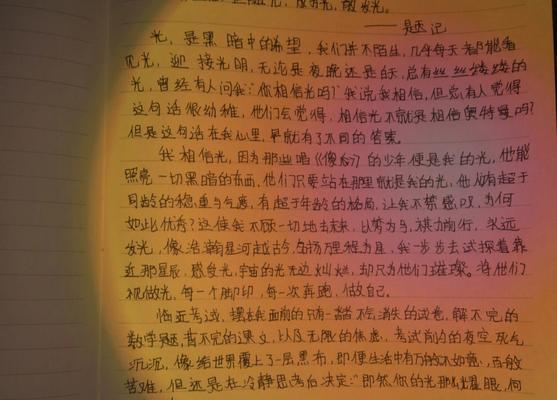 光，是黑暗中的希望，我们并不陌生，几乎每天都能看
见光，迎接光明，无论是夜晚还是白天，总有丝丝缕缕的
光，曾经有人问我："你相信光吗？"我说我相信，但总有人觉得
这句话很幼稚，他们会觉得，相信光不就是相信奥特曼吗？
但是这句话在我心里，早就有了不同的答案。
我相信光，因为那些唱《像你》的少年便是我的光，他能
照亮一切黑暗的东西，他们只要站在那里就是我的光，他们有超于
同龄的稳重与气度，有超于年龄的格局，让我不禁感叹，为何
如此优秀？这使我不顾一切地去未来，以梦为马，砥砺前行，永远
发光，像浩瀚星河越古今，名扬万里程为星，我一步步去试探着靠
近那星辰，感受光，宇宙的光无边灿烂，却只为他们璀璨。将他们
视做光，每一个脚印，每一次奔跑，做自己。
临亚考试，摆在我面前的只有一沓沓不会消失的试卷，解不完的
数学题，背不完的课文，以及无限的焦虑，考试前夕的夜空死气
沉沉，像给世界覆上了一层黑布，即便生活中有万般不如意，百般
苦难，但还是在冷静思考后决定："即然你的光那么耀眼，何